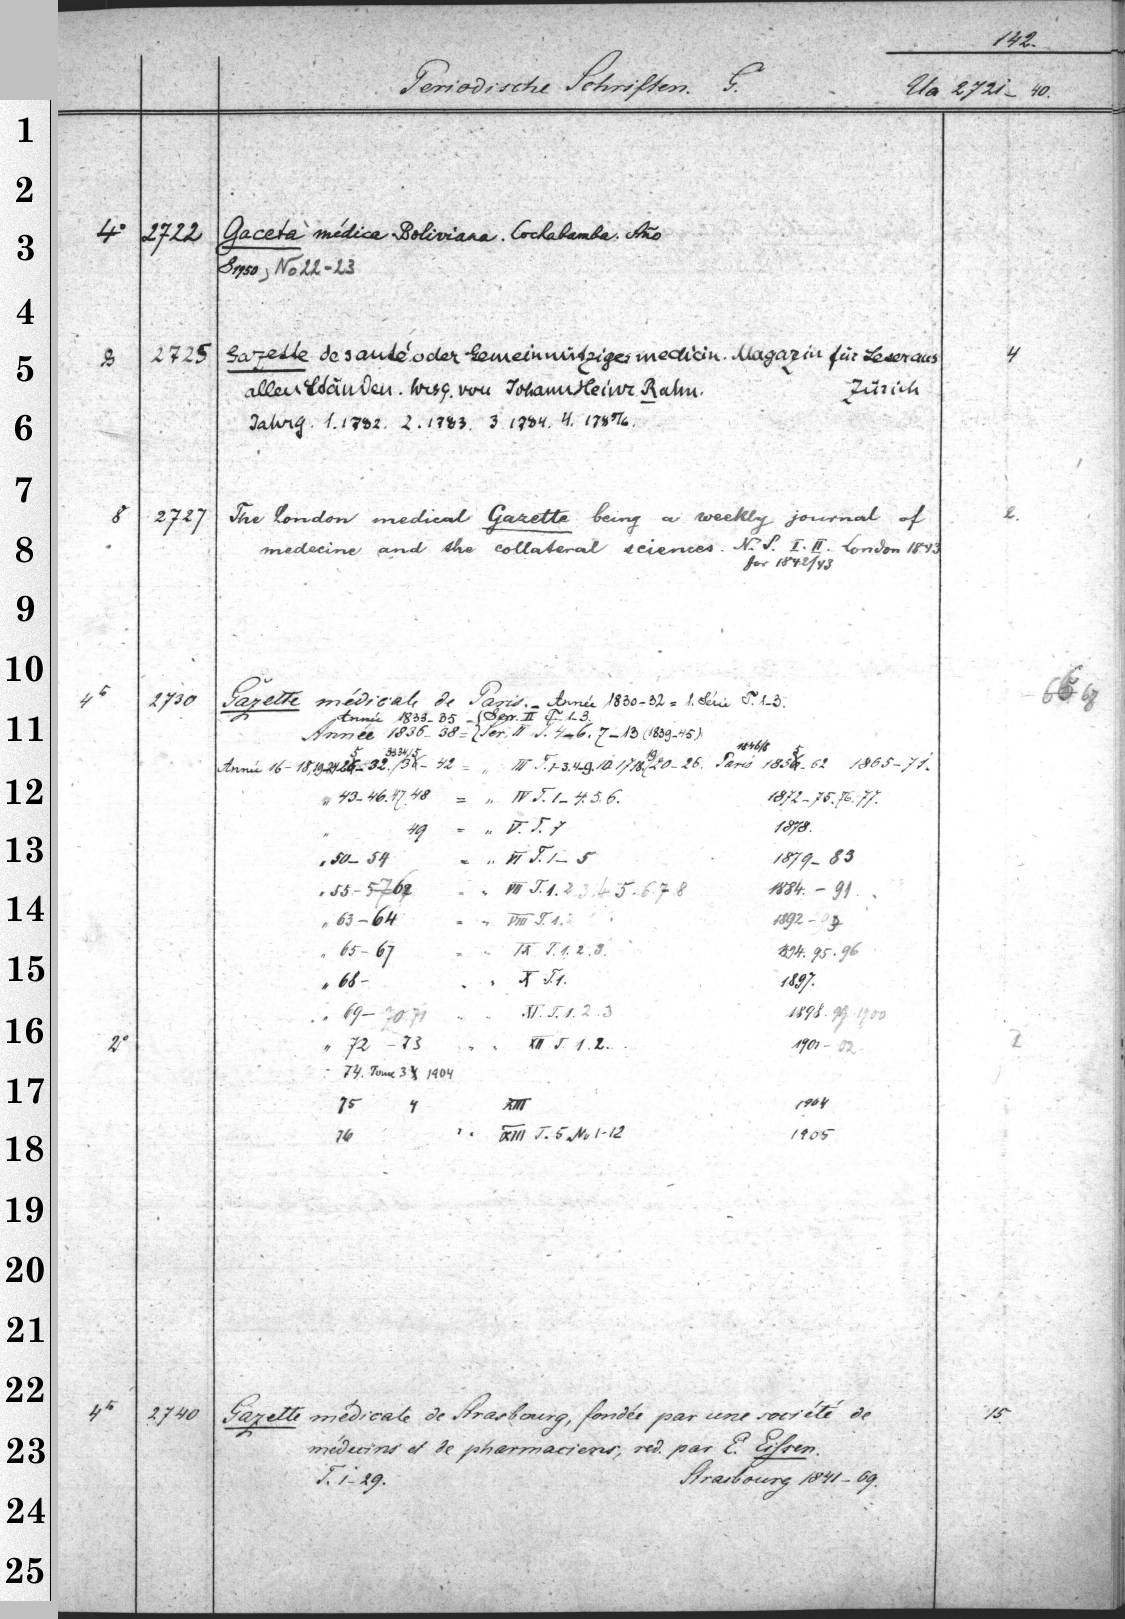 142.
Periodische Schriften. G. Ua 2721-40.
1
2
3
4
5
6
7
8
9
10
11
12
13
14
15
16
17
18
19
20
21
22
23
24
25
4° 2722 Gaceta médica Boliviana. Cochabamba. Año
8 1950, No 22-23
8 2725 Gazette de santé oder Gemeinnütziges medicin. Magazin für Leser aus 4
allen Ständen. hrsg. von Johann Heinr. Rahn. Zürich
Jahrg. 1.1782. 2.1783. 3 1784. 4. 1785/6.
8 2727 The London medical Gazette being a weekly journal of 2.
medecine and the collateral sciences. N. S. I. II. London 1843
for 1842/43
4° 2730 Gazette médicale de Paris. - Année 1830-32 = 1. Série T. 1-3. 68
Année 1833-35 - Ser. II T. 1-3.
Année 1836-38 = Ser. II T. 4-6. 7-13 (1839-45)
Année 16-18, -32. - 42 = " III T. 1-3. 4-9. 10. 17 18. 19 20-26. Paris 1846/8 -62 1865-71.
" 43-46. 47. 48 = " IV T. 1-4. 5. 6. 1872-75. 76. 77.
" 49 = " V. T. 7 1878.
" 50-54 = " VI T. 1-5 1879-83
" 55- 62 " " VII T. 1. 2 3 4 5. 6. 7 8 1884. - 91.
" 63-64 = " VIII T. 1. 2 1892-93
" 65-67 = " IX T. 1. 2. 3. 1894. 95. 96
" 68- " " X T. 1. 1897.
" 69- 70 71 " " XI. T. 1. 2. 3 1898. 99. 1900
2° " 72 - 73 " " XII T. 1. 2. 1901-02. 2
" 74. Tome 3 1904
75 4 XIII 1904
76 " " XIII T. 5. No 1-12 1905
4° 2740 Gazette médicale de Strasbourg, fondée par une société de 15
médecins et de pharmaciens, red. par E. Eissen.
T. 1-29. Strasbourg 1841-69.